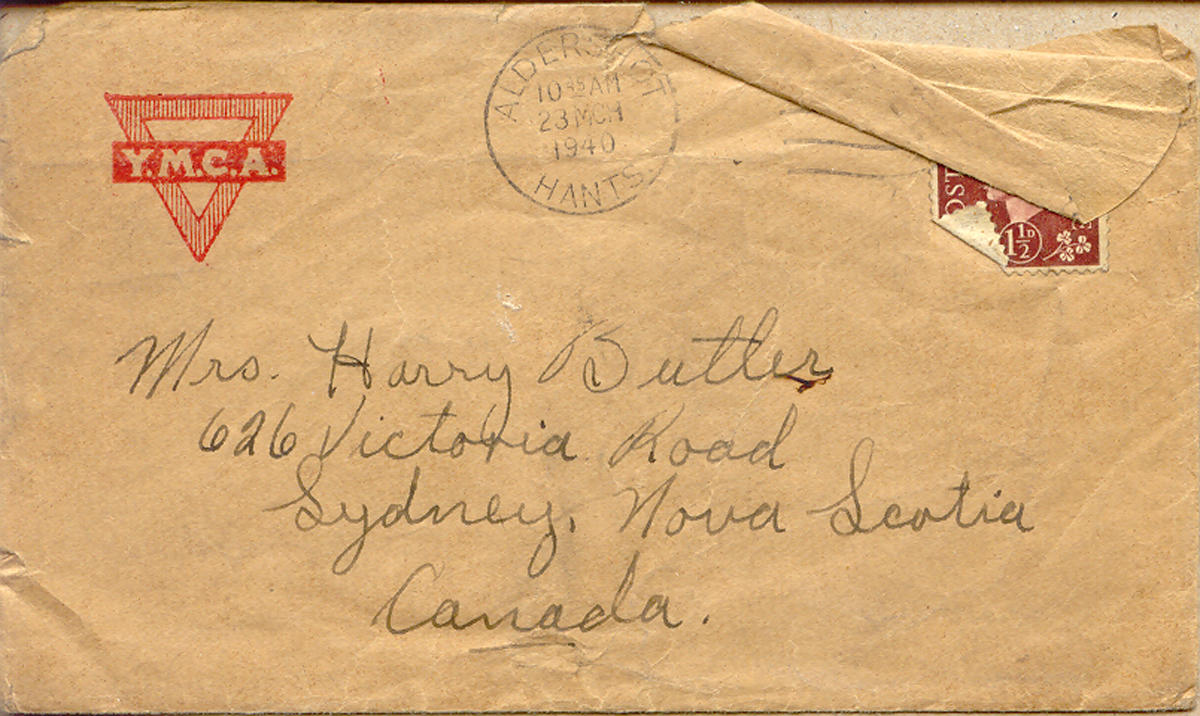 Y.M.C.A.
ALDERSHOT
10 35 AM
23 MCH
1940
HANTS.
1½D
Mrs. Harry Butler
626 Victoria Road
Sydney, Nova Scotia
Canada.